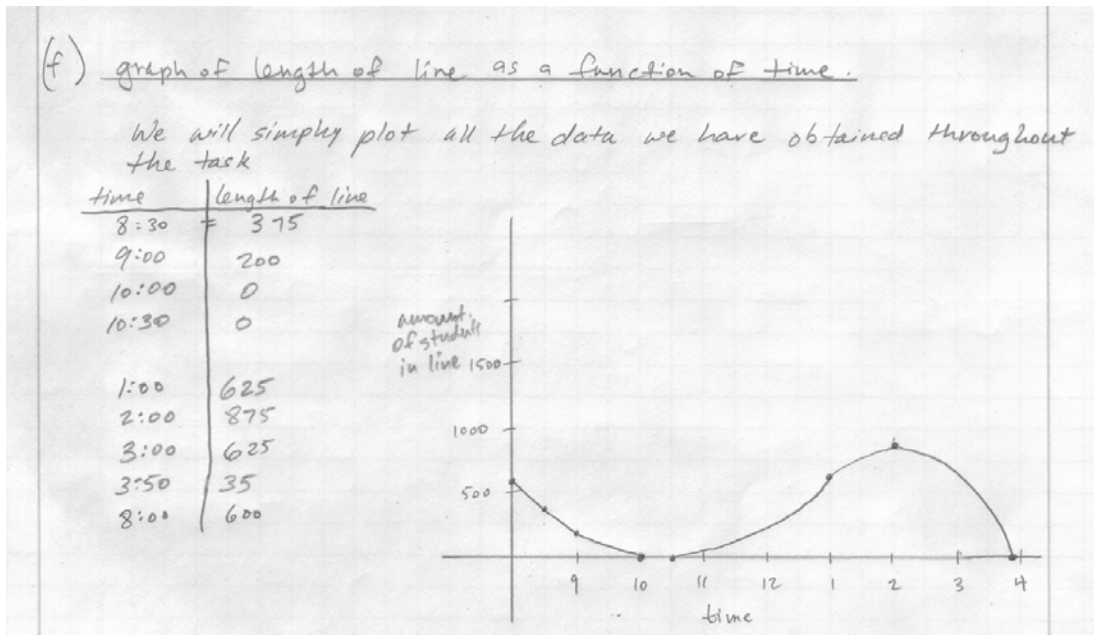 (f) graph of length of line as a function of time.
We will simply plot all the data we have obtained throughout
the task
time length of line
8:30 375
9:00 200
10:00 0
10:30 0
1:00 625
2:00 875
3:00 625
3:50 35
8:00 600
amount
of students
in line
1500
1000
500
9 10 11 12 1 2 3 4
time